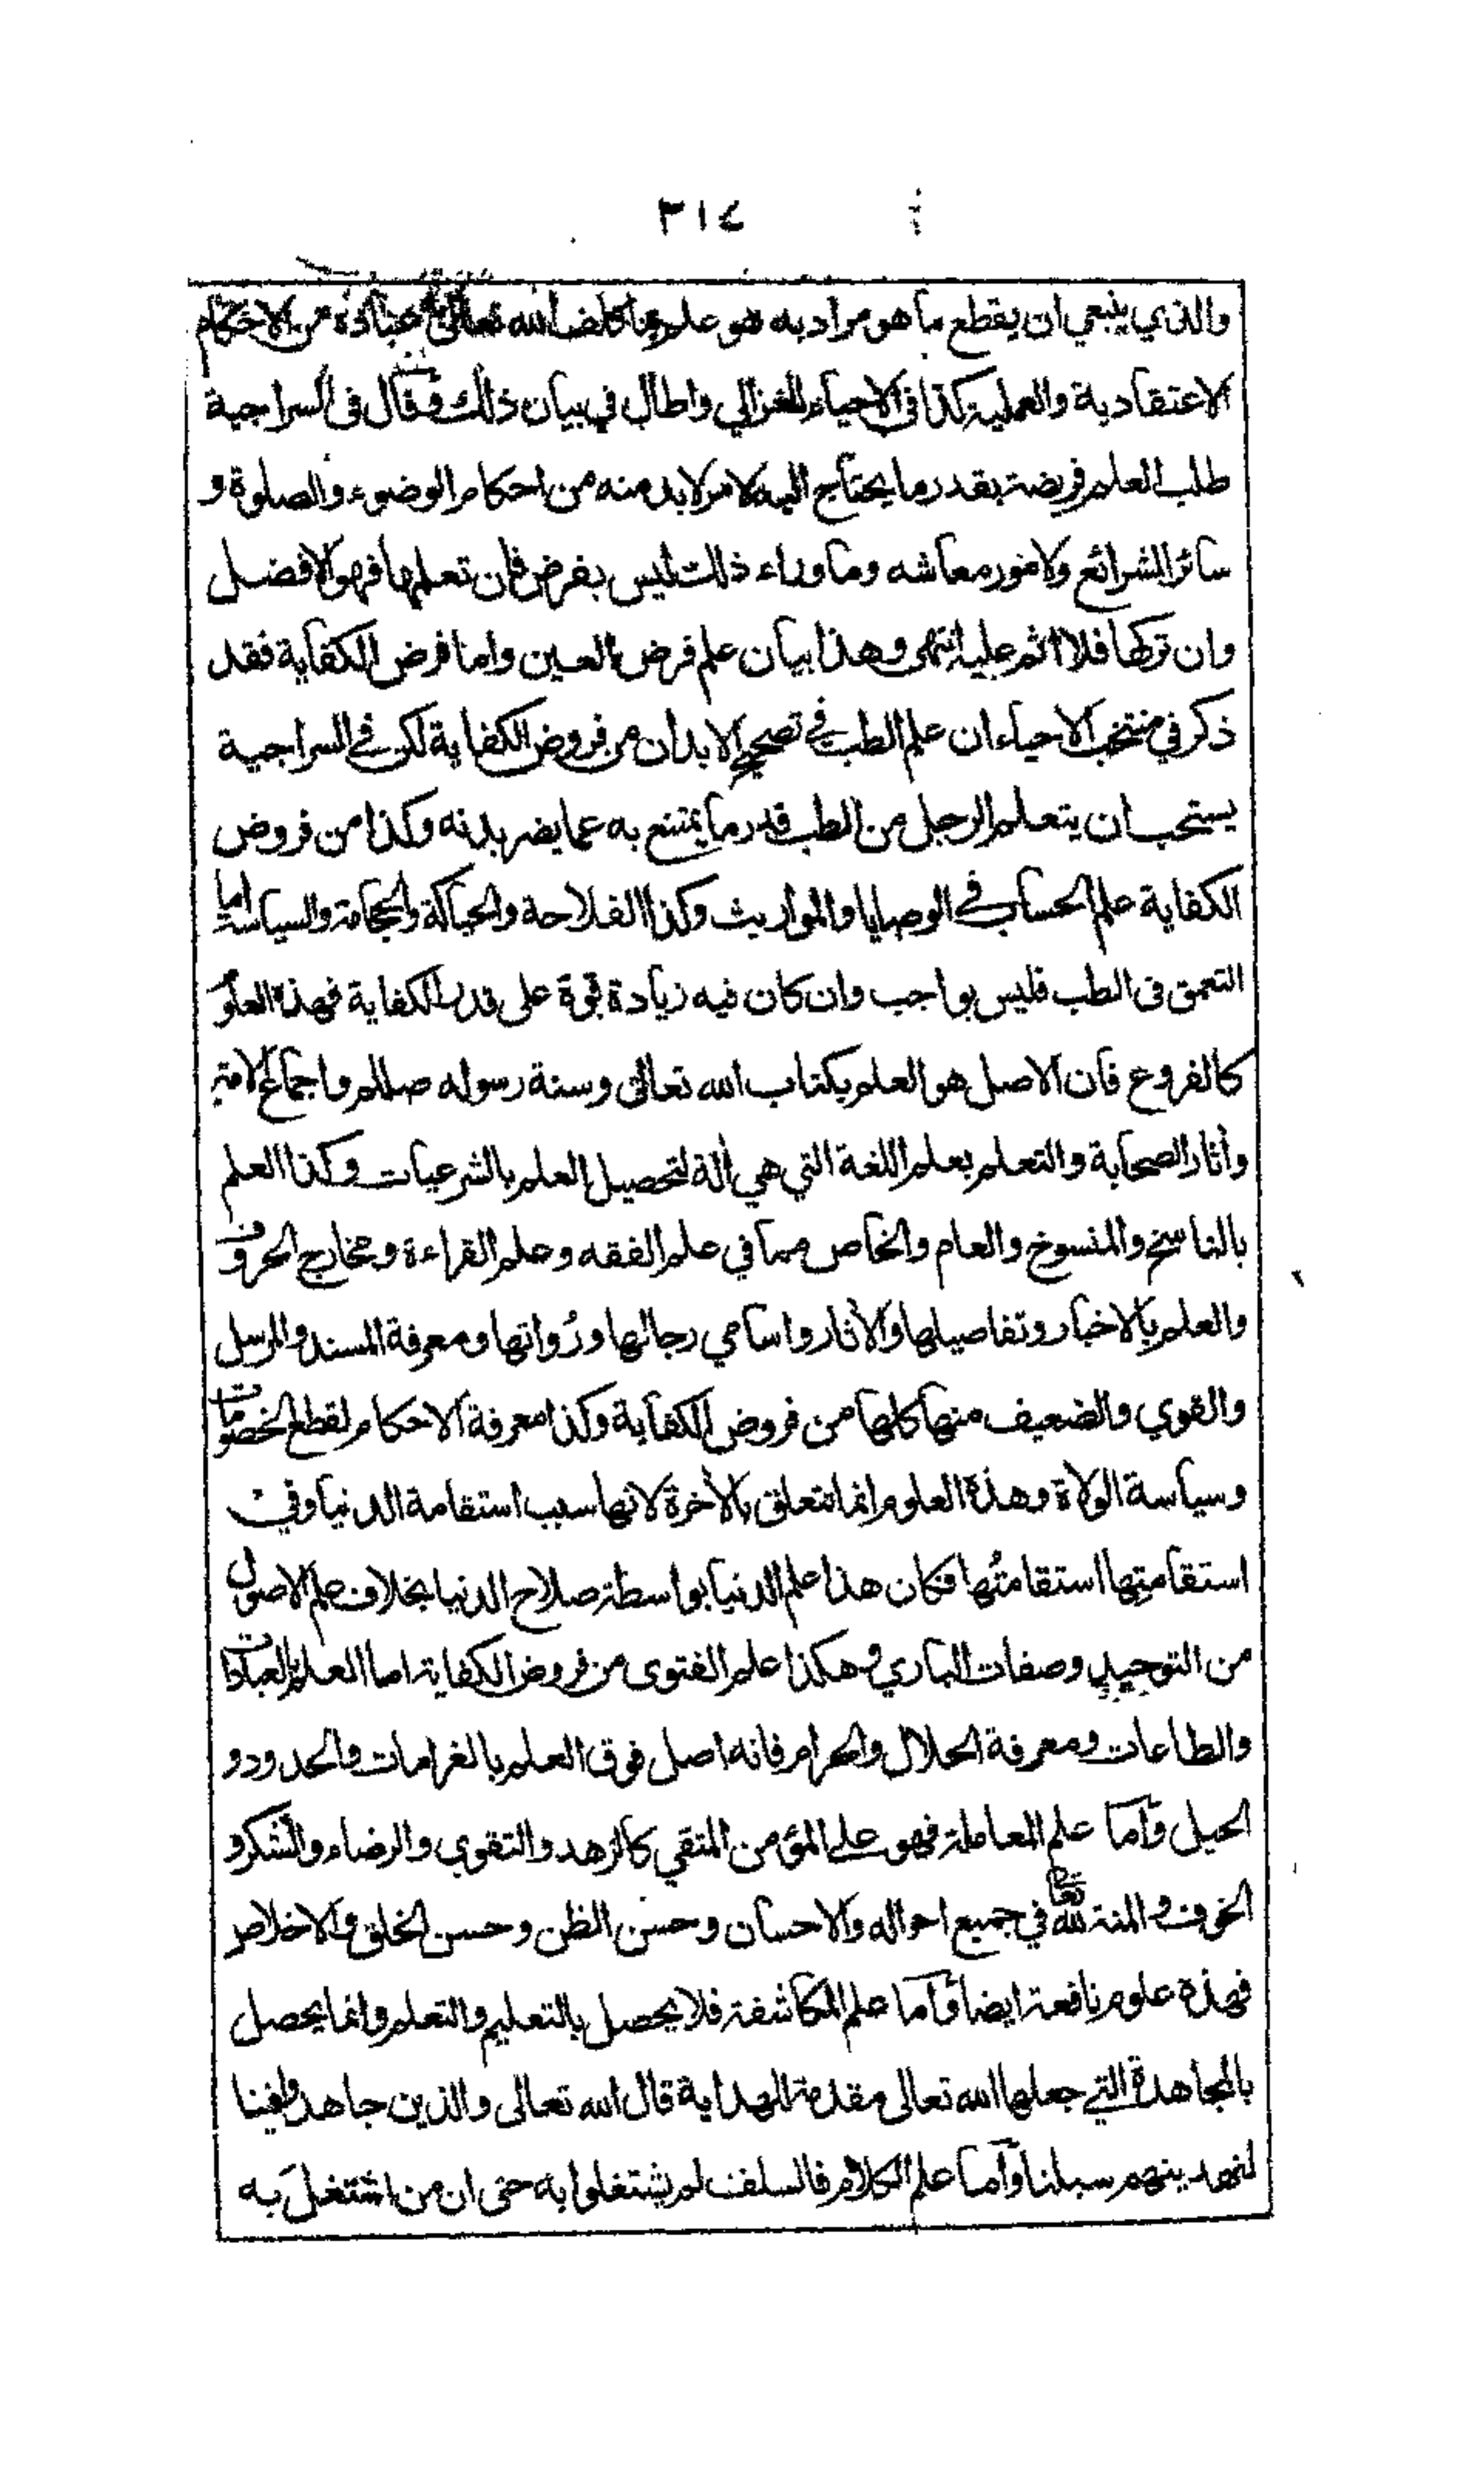 ٣١٤
والذي ينبغي ان يقطع ما هو مراد به هو علم بما كلف الله تعالى عباده من الاحكام
الاعتقادية والعملية كذا في الاحياء للغزالي واطال في بيان ذلك وقال في السراجية
طلب العلم فريضة بقدر ما يحتاج اليه لامر لابد منه من احكام الوضوء والصلوة و
سائر الشرائع ولامور معاشه وما وراء ذلك ليس بفرض فان تعلمها فهو الافضل
وان تركها فلا اثم عليه انتهى وهذا بيان علم فرض العين واما فرض الكفاية فقد
ذكر في منتخب الاحياء ان علم الطب في تصحيح الابدان من فروض الكفاية لكن في السراجية
يستحب ان يتعلم الرجل من الطب قدر ما يمتنع به عما يضر بدنه وكذا من فروض
الكفاية علم الحساب في الوصايا والمواريث وكذا الفلاحة والحياكة والحجامة والسياسة اما
التعمق في الطب فليس بواجب وان كان فيه زيادة قوة على قدر الكفاية فهذه العلوم
كالفروع فان الاصل هو العلم بكتاب الله تعالى وسنة رسوله صللم واجماع الامة
وأثار الصحابة والتعلم بعلم اللغة التي هي ألة لتحصيل العلم بالشرعيات وكذا العلم
بالناسخ والمنسوخ والعام والخاص مما في علم الفقه وعلم القراءة ومخارج الحروف
والعلم بالاخبار وتفاصيلها والأثار واسامي رجالها ورُواتها ومعرفة المسند والمرسل
والقوي والضعيف منها كلها من فروض الكفاية وكذا معرفة الاحكام لقطع الخصومات
وسياسة الولاة وهذه العلوم انما تتعلق بالأخرة لانها سبب استقامة الدنيا وفي
استقامتِها استقامتُها فكان هذا علم الدنيا بواسطة صلاح الدنيا بخلاف علم الاصول
من التوحيد وصفات الباري وهكذا علم الفتوى من فروض الكفاية اما العلم بالعبادات
والطاعات ومعرفة الحلال والحرام فانه اصل فوق العلم بالغرامات والحدود و
الحيل وأما علم المعاملة فهو على المؤمن المتقي كالزهد والتقوى والرضاء والشكر و
الخوف والمنة لله تعا في جميع احواله والاحسان وحسن الظن وحسن الخلق والاخلاص
فهذه علوم نافعة ايضا وأما علم المكاشفة فلا يحصل بالتعليم والتعلم وانما يحصل
بالمجاهدة التي جعلها الله تعالى مقدمة للهداية قال الله تعالى والذين جاهدوا فينا
لنهدينهم سبلنا وأما علم الكلام فالسلف لم يشتغلوا به حتى ان من اشتغل به